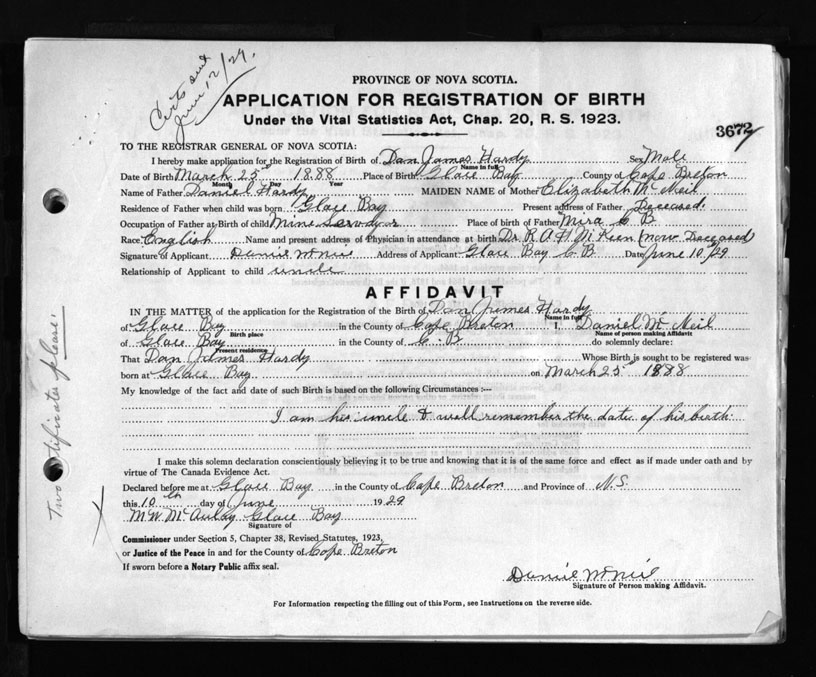 Certs sent
June 12/29.
PROVINCE OF NOVA SCOTIA.
APPLICATION FOR REGISTRATION OF BIRTH
Under the Vital Statistics Act, Chap. 20, R. S. 1923.
3672
TO THE REGISTRAR GENERAL OF NOVA SCOTIA:
I hereby make application for the Registration of Birth of Dan James Hardy Sex Male
Name in full
Date of Birth March 25th 1888 Place of Birth Glace Bay County of Cape Breton
Month Day Year
Name of Father Daniel Hardy MAIDEN NAME of Mother Elizabeth McNeil
Residence of Father when child was born Glace Bay Present address of Father Deceased.
Occupation of Father at Birth of child Mine Place of birth of Father Mira C B
Race English Name and present address of Physician in attendance at birth Dr. R. A. H. McKeen (now Deceased)
Signature of Applicant Daniel McNeil Address of Applicant Glace Bay C B Date June 10/29
Relationship of Applicant to child uncle
AFFIDAVIT
IN THE MATTER of the application for the Registration of the Birth of Dan James Hardy
Name in full
of Glace Bay in the County of Cape Breton I, Daniel McNeil
Birth place Name of person making Affidavit
of Glace Bay in the County of C. B do solemnly declare:
Present residence
That Dan James Hardy Whose Birth is sought to be registered was
born at Glace Bay on March 25th 1888
My knowledge of the fact and date of such Birth is based on the following Circumstances :—
I am his uncle & well remember the date of his birth.
I make this solemn declaration conscientiously believing it to be true and knowing that it is of the same force and effect as if made under oath and by
virtue of The Canada Evidence Act.
Declared before me at Glace Bay in the County of Cape Breton and Province of N.S.
this 10th day of June 1929
M. W. McAulay Glace Bay
Signature of
Commissioner under Section 5, Chapter 38, Revised Statutes, 1923,
or Justice of the Peace in and for the County of Cape Breton
If sworn before a Notary Public affix seal.
Daniel McNeil
Signature of Person making Affidavit.
For Information respecting the filling out of this Form, see Instructions on the reverse side.
Two certificates please.